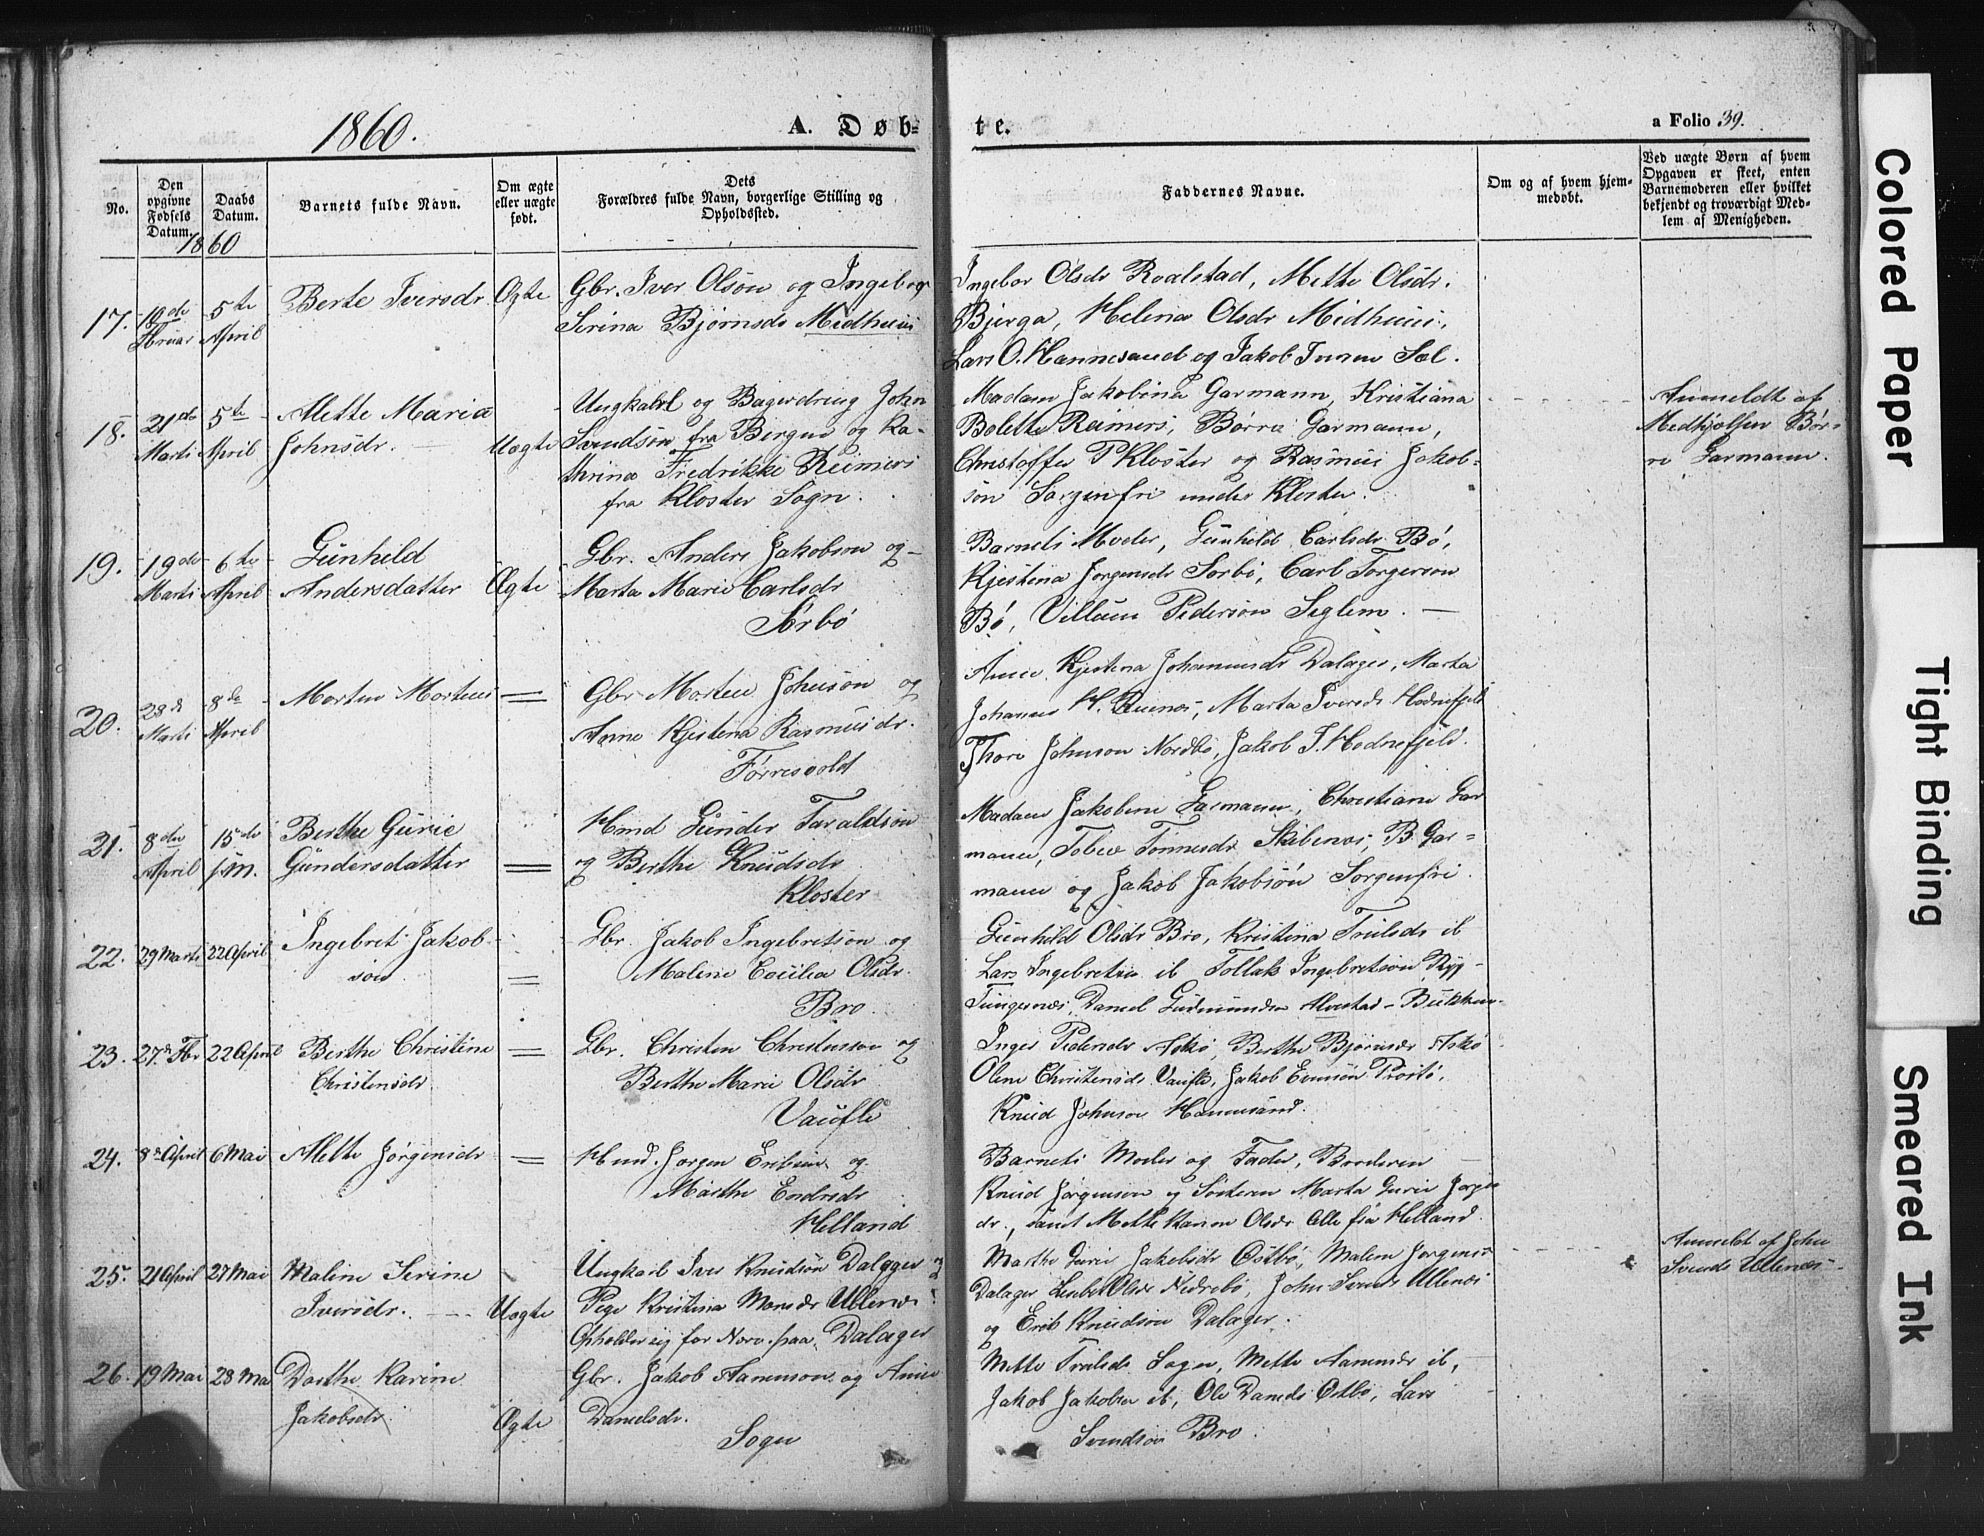 1860.
A. Døb=
te.
a Folio 39.
No.
Den opgivne Fødsels Datum.
Daabs Datum.
Barnets fulde Navn.
Om ægte eller uægte født.
Dets
Forældres fulde Navn, borgerlige Stilling og
Opholdssted.
Faddernes Navne.
Om og af hvem hjem-
medøbt.
Ved uægte Børn af hvem
Opgaven er skeet, enten
Barnemoderen eller hvilket
bekjendt og troværdigt Med-
lem af Menigheden.
1860
17. 5te April
Berte Iversdr. Ægte
Gbr. Iver Olsøn og Ingebor
Serina Bjørnsdr Midhuus
Ingebor Olsdr Roalstad, Mette Olsdr.
Bjerga, Helena Olsdr Midhuus,
Lars O. Hannesand og Jakob Sæl.
18. 21de Marti 5te April
Mette Maria
Johnsdr. Uægte
Ungkarl og Bagerdreng John
Svendsøn fra Bergen og Ka-
thrina Fredrikke Reimers
fra Kloster Sogn.
Madam Jakobina Garmann, Kristiana
Bolette Reimers, Børre Garmann,
Christoffer P Kloster og Rasmus Jakob-
søn Sorgenfri under Kloster.
Anmeldt af
Medhjælper Bør-
re Garmann.
19. 19de Marti 6te April
Gunhild
Andersdatter Ægte
Gbr. Anders Jakobsøn og
Marta Marie Carlsdr
Sørbø
Barnets Moder, Gunhild Carlsdr Bø,
Kjestina Jørgensdr Sørbø, Carl Torgersøn
Bø, Villum Pedersøn Seglem.
20. 28de Marti 8de April
Morten Mortens =
Gbr Morten Johnsøn og
Anne Kjestena Rasmusdr.
Førresvold
Anne Kjestena Johannesdr Dalager, Marta
Johannes H. Marta Iversdr Hodnefjeld
Thore Johnson Nordbø, Jakob T. Hodnefjeld.
21. 8de April 15de f.m.
Berthe Gurie
Gundersdatter =
Hmd Gunder Taraldsøn
og Berthe Knudsdr
Kloster
Madam Jakobine Garmann, Christiane Gar
mann, Tobie Tønnesdr Skibenes, B Gar=
mann og Jakob Jakobsøn Sorgenfri.
22. 29 Marti 22 April
Ingebret Jakob-
søn =
Gbr. Jakob Ingebretsøn og
Malene Cecilia Olsdr.
Bro.
Gunhild Olsdr Bro, Kristina Trulsdr ib
Lars Ingebretsøn ib Tollak Ingebretsøn Ryg-
Tungenæs, Daniel Gudmundsen Alvestad -
23. 27de Fbr 22 April
Berthe Christine
Christensdr =
Gbr. Christen Christensøn og
Berthe Marie Olsdr
Vaufle
Inger Pedersdr Askø, Berthe Bjørnsdr Askø
Olene Christensdr Vaufle, Jakob
Knud Johnson Hannesand.
24. 8de April 6 Mai
Mette Jørgensdr =
Hmd. Jørgen Eriksen og
Marthe Endresdr
Helland
Barnets Moder og Fader, Broderen
Knud Jørgensøn og Søsteren Marta Gurie Jørgens
dr., samt Mette Karine Olsdr Alle fra Helland.
25. 21 April 27 Mai
Maline Serine
Iversdr. Uægte
Ungkarl Iver Knudsøn Dalager
Pige Kristina Monsdr Ullenæs
Opholder sig for Nærv. paa Dalager
Marthe Gurie Jakobsdr Østbø, Malene Jørgens
Dalager, Lisbet Olsdr Nedrebø, John Svends Ullenæs
og Erik Knudsøn Dalager.
Anmeldt af John
Svends Ullenæs.
26. 19 Mai 28 Mai
Dorthe Karine
Jakobsdr Ægte
Gbr. Jakob Aamunson og Anne
Danielsdr.
Sogn
Mette Trulsdr Sogn, Mette Aamundsdr ib,
Jakob Jakobsen ib, Ole Daniels Østbø, Lars
Svendsøn Bro.
Colored Paper
Tight Binding
Smeared Ink